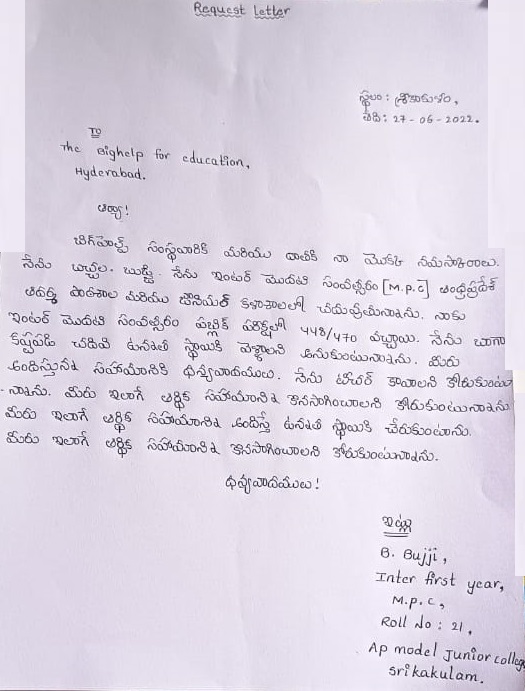 Request Letter
స్థలం : శ్రీకాకుళం,
తేది : 27-06-2022.
To
The Bighelp for education,
Hyderabad.
అయ్యా!
బిగ్‌హెల్ప్ సంస్థవారికి మరియు దాతకి నా మొదటి నమస్కారాలు.
నేను బచ్చల. బుజ్జి. నేను ఇంటర్ మొదటి సంవత్సరం [M.P.C] ఆంధ్రప్రదేశ్
ఆదర్శ పాఠశాల మరియు జూనియర్ కళాశాలలో చదువుతున్నాను. నాకు
ఇంటర్ మొదటి సంవత్సరం పబ్లిక్ పరీక్షలో 448/470 వచ్చాయి. నేను బాగా
కష్టపడి చదివి ఉన్నత స్థాయికి వెళ్లాలని అనుకుంటున్నాను. మీరు
అందిస్తున్న సహాయానికి ధన్యవాదములు. నేను టీచర్ కావాలని కోరుకుంటు
-న్నాను. మీరు ఇలాగే ఆర్థిక సహాయాన్ని కొనసాగించాలని కోరుకుంటున్నాను
మీరు ఇలాగే ఆర్థిక సహాయాన్ని అందిస్తే ఉన్నత స్థాయికి చేరుకుంటాను.
మీరు ఇలాగే ఆర్థిక సహాయాన్ని కొనసాగించాలని కోరుకుంటున్నాను.
ధన్యవాదములు!
ఇట్లు
B. Bujji,
Inter first year,
M.P.C,
Roll No : 21,
Ap model Junior college
Srikakulam.